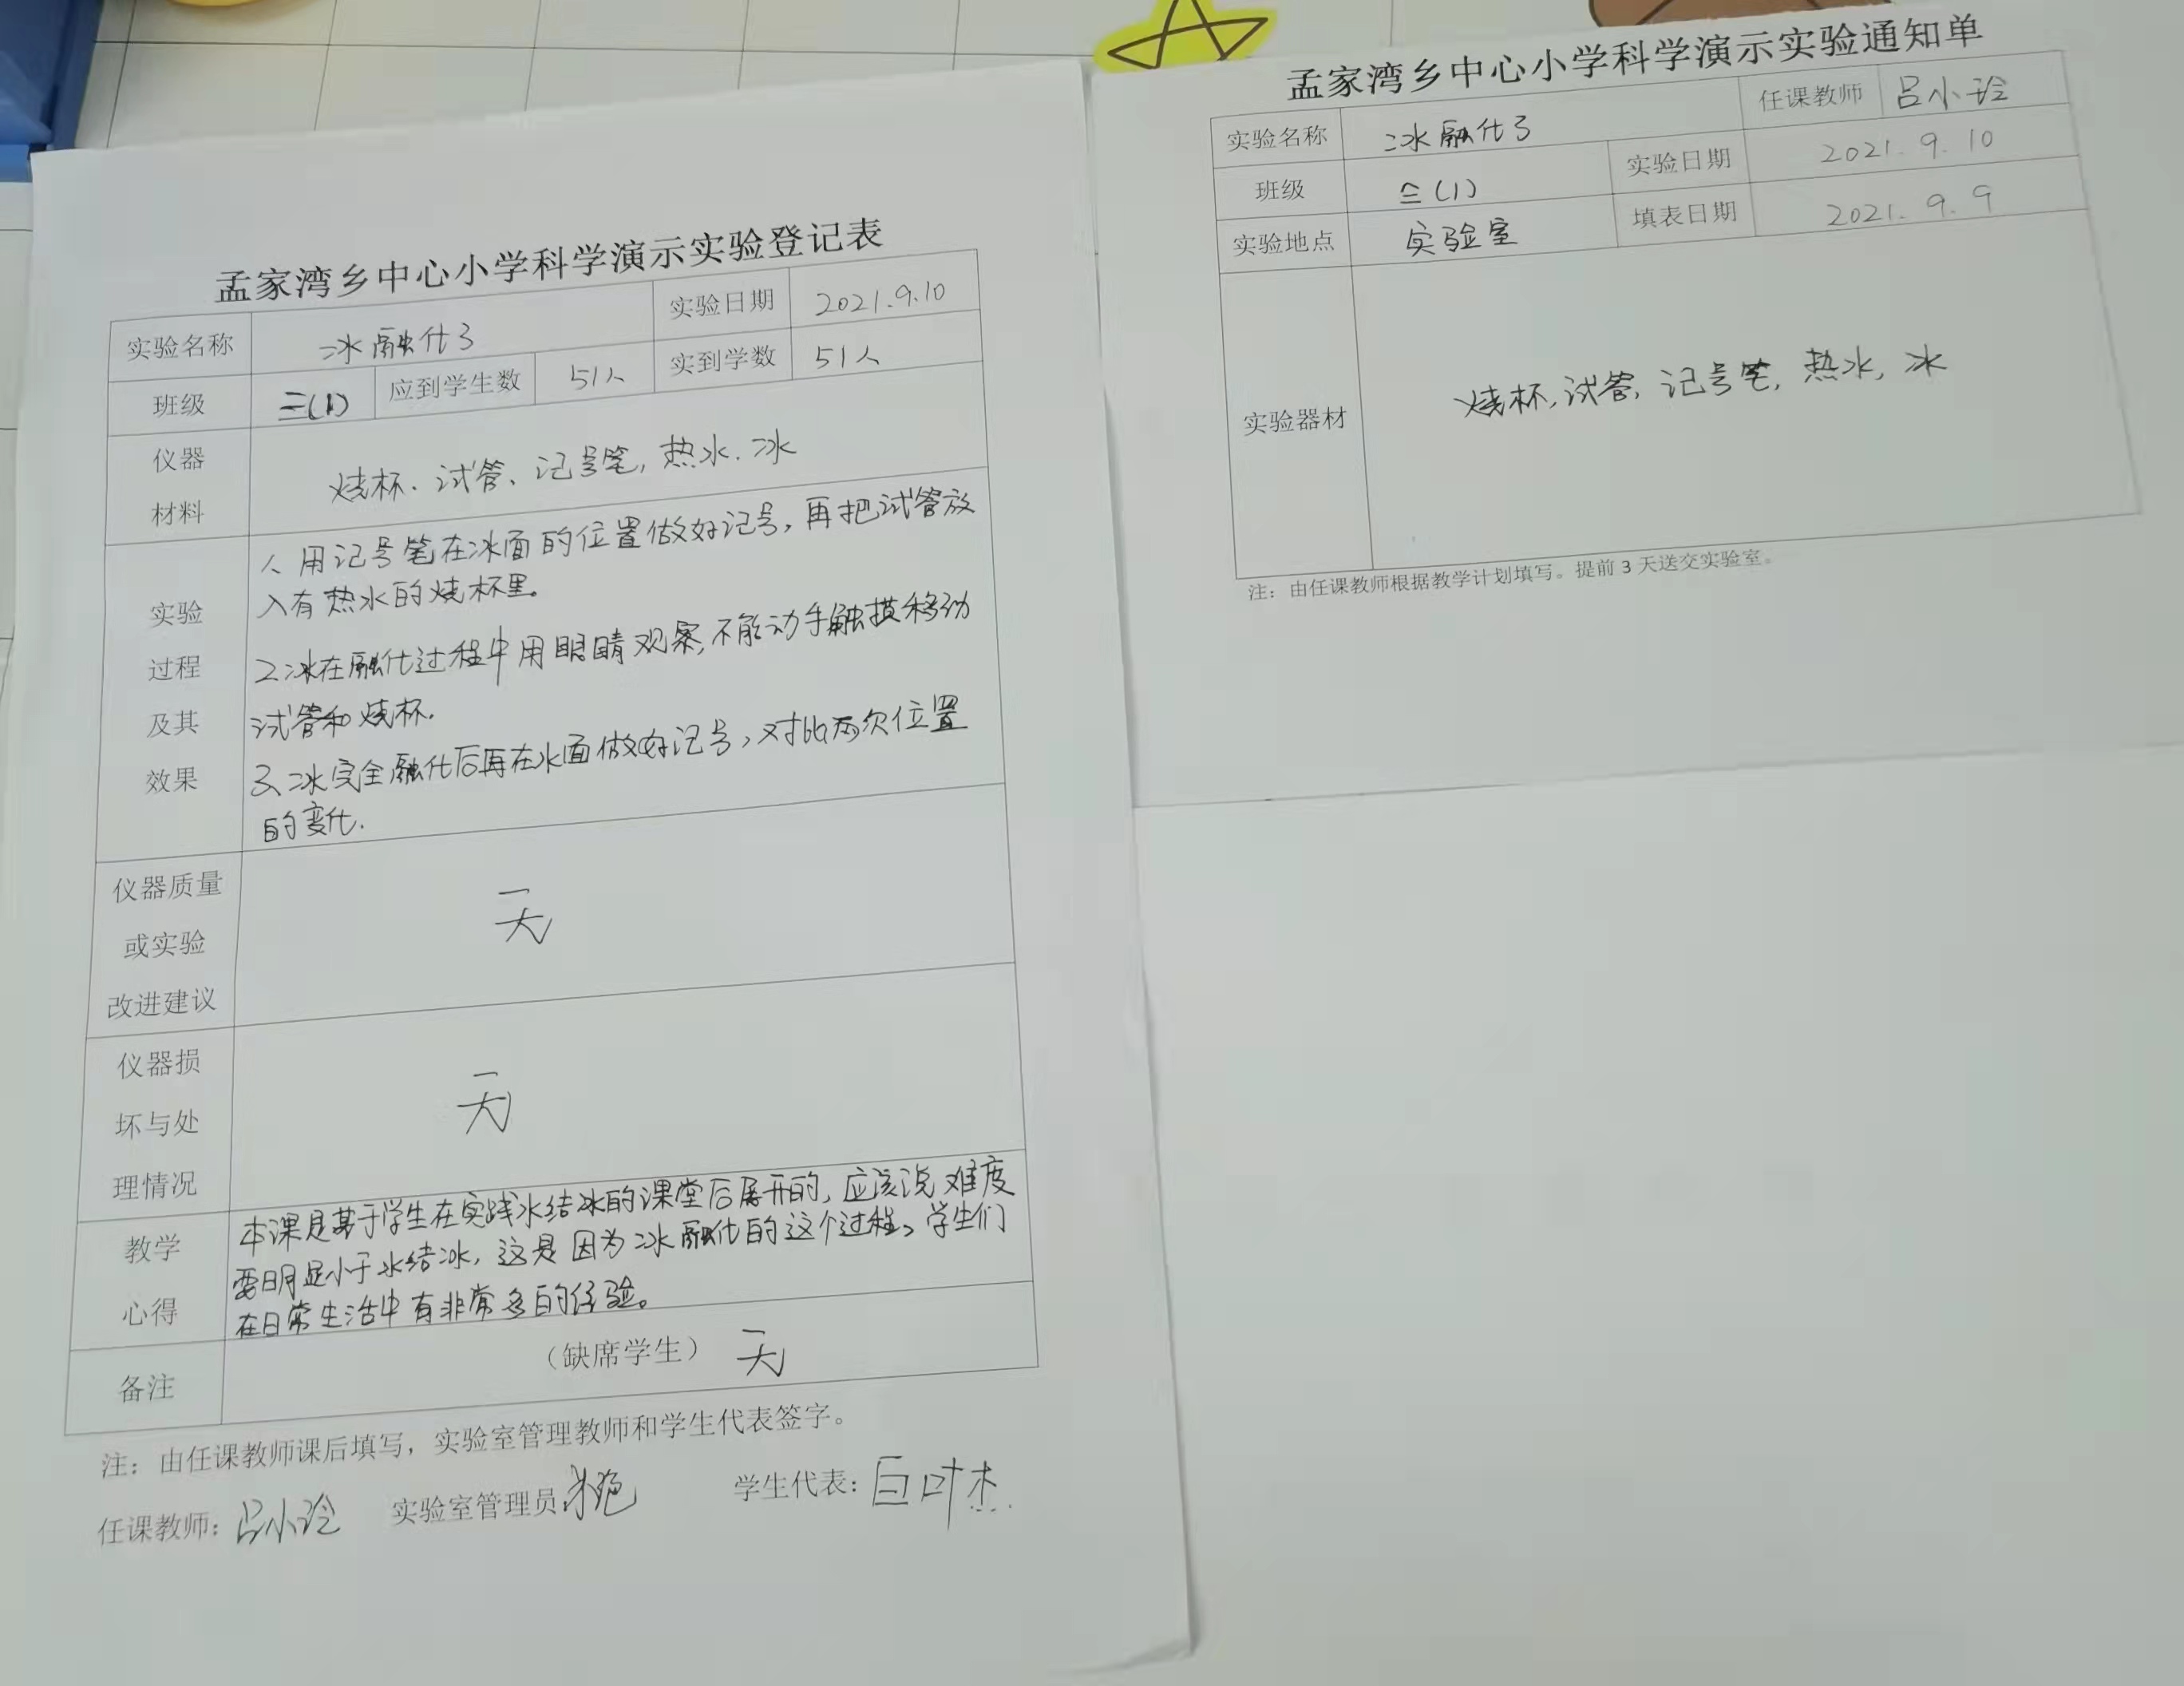 孟家湾乡中心小学科学演示实验登记表
实验名称 冰融化了 实验日期 2021.9.10
班级 三(1) 应到学生数 51人 实到学数 51人
仪器
材料
烧杯、试管、记号笔,热水、冰
实验
过程
及其
效果
1、用记号笔在冰面的位置做好记号,再把试管放
入有热水的烧杯里。
2、冰在融化过程中用眼睛观察,不能动手触摸移动
试管和烧杯.
3、冰完全融化后再在水面做好记号,对比两次位置
的变化.
仪器质量
或实验
改进建议
无
仪器损
坏与处
理情况
无
教学
心得
本课是基于学生在实践水结冰的课堂后展开的,应该说难度
要明显小于水结冰,这是因为冰融化的这个过程,学生们
在日常生活中有非常多的经验。
备注 (缺席学生) 无
注:由任课教师课后填写,实验室管理教师和学生代表签字。
任课教师:吕小玲 实验室管理员 学生代表:
孟家湾乡中心小学科学演示实验通知单
实验名称 冰融化了 任课教师 吕小玲
班级 三(1) 实验日期 2021.9.10
实验地点 实验室 填表日期 2021.9.9
实验器材 烧杯,试管,记号笔,热水,冰
注:由任课教师根据教学计划填写。提前3天送交实验室。